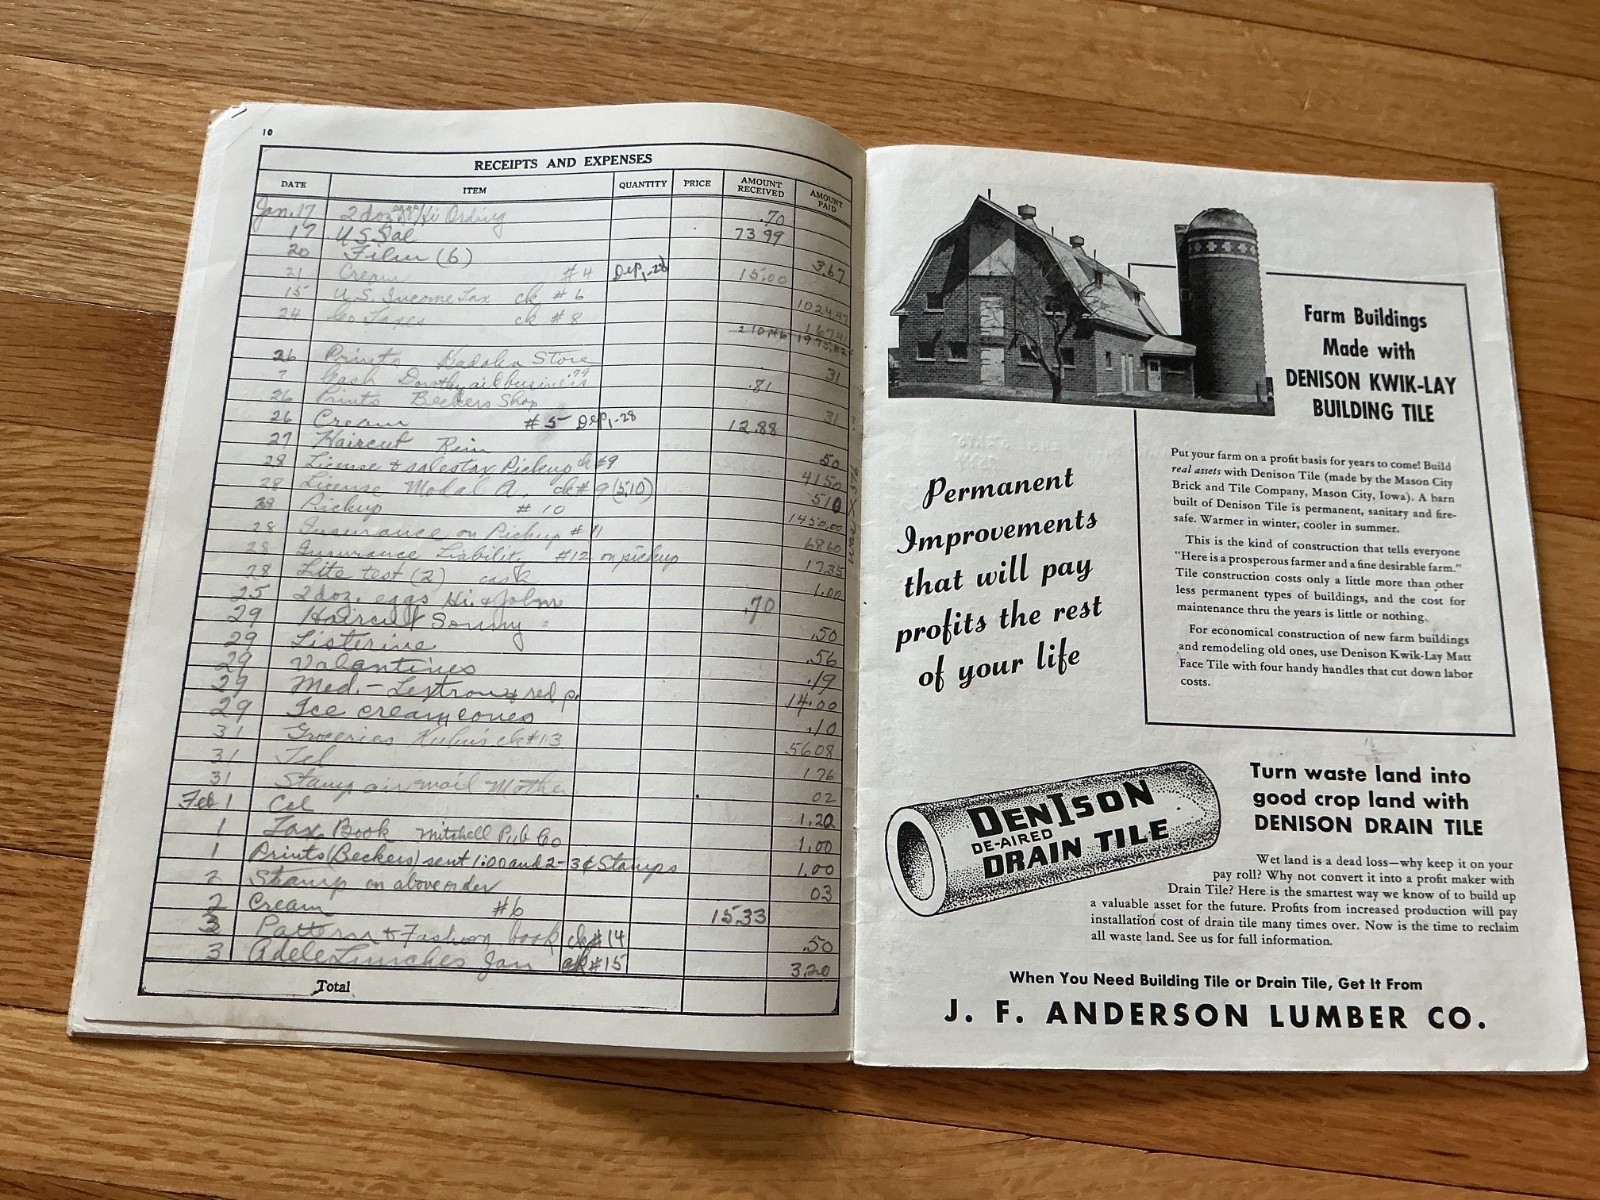 10
RECEIPTS AND EXPENSES
DATE ITEM QUANTITY PRICE AMOUNT RECEIVED AMOUNT PAID
Jan. 17 2 doz eggs .70
17 U.S. Sal 73.99
20 Film (6) 3.67
21 Cream #4 Dep. 1-28 15.00
15 U.S. Income Tax ck #6
24 Co Taxes ck #8
26 Prints Store 31
7 Cash Dorothy business .81
26 Prints Beckers Shop 31
26 Cream #5 Dep. 1-28 12.88
27 Haircut Rein 50
28 License & sales tax Pickup ck #9 41.50
28 License Modal A. ck #9 (5.10) 510
Pickup #10 1450.00
28 Insurance on Pickup #11 6860
28 Insurance Liability #12 on pickup 1735
28 Lite test (2) cash 1.00
25 2 doz. eggs Hi. & John .70
29 Haircut Sonny .50
29 Listerine .56
29 Valantines .19
29 Med. - & red 14.00
29 Ice cream cones .10
31 Groceries ck #13 5608
31 Tel 1.26
31 Stamp air mail Mother 02
Feb 1 1.20
1 Tax Book Mitchell Pub Co 1.00
1 Prints (Beckers) sent 1.00 and 2- 3¢ Stamps 1.00
2 Stamp on above order 03
2 Cream #6 15.33
3 Pattern & Fashion book ck #14 .50
3 Adele Lunches Jan ck #15 3.20
Total
Farm Buildings
Made with
DENISON KWIK-LAY
BUILDING TILE
Permanent
Improvements
that will pay
profits the rest
of your life
Put your farm on a profit basis for years to come! Build
real assets with Denison Tile (made by the Mason City
Brick and Tile Company, Mason City, Iowa). A barn
built of Denison Tile is permanent, sanitary and fire-
safe. Warmer in winter, cooler in summer.
This is the kind of construction that tells everyone
"Here is a prosperous farmer and a fine desirable farm."
Tile construction costs only a little more than other
less permanent types of buildings, and the cost for
maintenance thru the years is little or nothing.
For economical construction of new farm buildings
and remodeling old ones, use Denison Kwik-Lay Matt
Face Tile with four handy handles that cut down labor
costs.
DENISON
DE-AIRED
DRAIN TILE
Turn waste land into
good crop land with
DENISON DRAIN TILE
Wet land is a dead loss—why keep it on your
pay roll? Why not convert it into a profit maker with
Drain Tile? Here is the smartest way we know of to build up
a valuable asset for the future. Profits from increased production will pay
installation cost of drain tile many times over. Now is the time to reclaim
all waste land. See us for full information.
When You Need Building Tile or Drain Tile, Get It From
J. F. ANDERSON LUMBER CO.